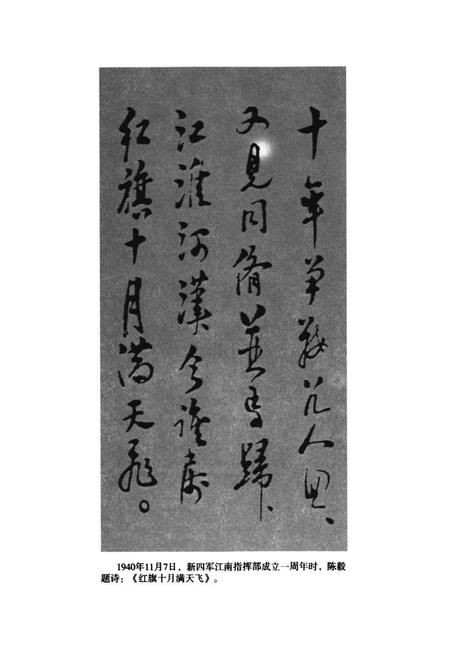 十年几人回、
又見同儕並马歸、
江淮河漢今誰属
红旗十月满天飞。
1940年11月7日，新四军江南指挥部成立一周年时，陈毅
题诗：《红旗十月满天飞》。